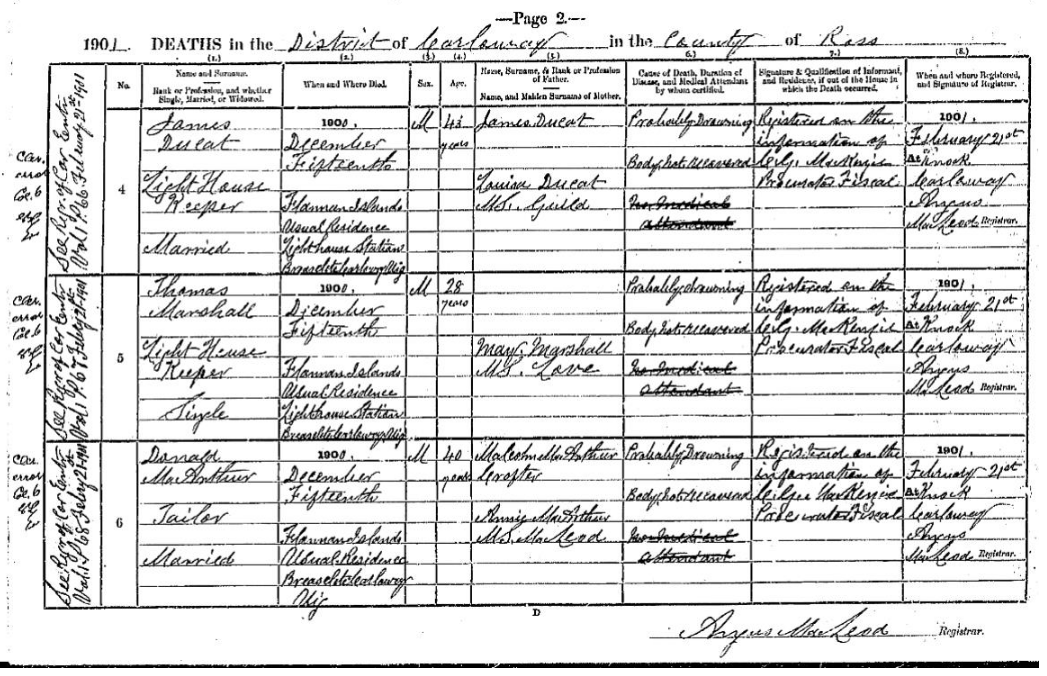 —Page 2.—
1901. DEATHS in the District of Carloway in the County of Ross
(1.) (2.) (3.) (4.) (5.) (6.) (7.) (8.)
No.
Name and Surname.
Rank or Profession, and whether Single, Married, or Widowed.
When and Where Died.
Sex.
Age.
Name, Surname, & Rank or Profession of Father.
Name, and Maiden Surname of Mother.
Cause of Death, Duration of Disease, and Medical Attendant by whom certified.
Signature & Qualification of Informant, and Residence, if out of the House in which the Death occurred.
When and where Registered, and Signature of Registrar.
See Reg. of Cor. Entries
Vol. 1 P. 66 February 23rd 1901
4
James
Ducat
Light House
Keeper
Married
1900.
December
Fifteenth
Flannan Islands
Usual Residence
Lighthouse Station
Breasclete Carloway Uig
M
43
years
James Ducat
Louisa Ducat
M.S. Guild
Probably Drowning
Body not recovered
No Medical
attendant
Registered on the
information of
C.G. MacKenzie
Procurator Fiscal
1901
February 21st
At Knock
Carloway
Angus
MacLeod Registrar.
See Reg. of Cor. Entries
5
Thomas
Marshall
Light House
Keeper
Single
1900.
December
Fifteenth
Flannan Islands
Usual Residence
Lighthouse Station
Breasclete Carloway Uig
M
28
years
Mary Marshall
M.S. Love
Probably drowning
Body not recovered
No Medical
attendant
Registered on the
information of
C.G. MacKenzie
Procurator Fiscal
1901
February 21st
At Knock
Carloway
Angus
MacLeod Registrar.
See Reg. of Cor. Entries
6
Donald
MacArthur
Tailor
Married
1900.
December
Fifteenth
Flannan Islands
Usual Residence
Breasclete Carloway
Uig
M
40
years
Malcolm MacArthur
Crofter
Annie MacArthur
M.S. MacLeod
Probably Drowning
Body not recovered
No Medical
attendant
Registered on the
information of
C.G. MacKenzie
Procurator Fiscal
1901
February 21st
At Knock
Carloway
Angus
MacLeod Registrar.
D
Angus MacLeod Registrar.